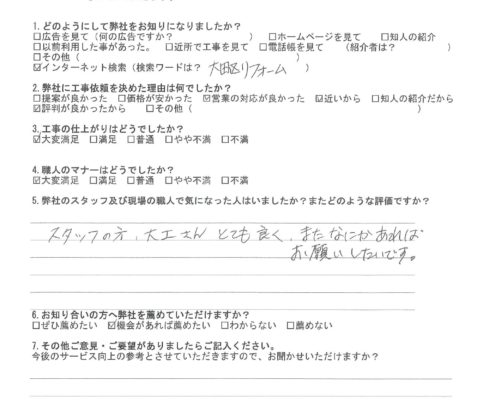 1. どのようにして弊社をお知りになりましたか？
□広告を見て（何の広告ですか？　　　　　　　　）　□ホームページを見て　□知人の紹介
□以前利用した事があった。　□近所で工事を見て　□電話帳を見て　（紹介者は？　　　　　　）
□その他（　　　　　　　　　　　　　　　　　　　　　　　　）
☑インターネット検索（検索ワードは？　大田区リフォーム　　）
2. 弊社に工事依頼を決めた理由は何でしたか？
□提案が良かった　□価格が安かった　☑営業の対応が良かった　☑近いから　□知人の紹介だから
☑評判が良かったから　　□その他（　　　　　　　　　　　　　　　　　　　　　　　　）
3. 工事の仕上がりはどうでしたか？
☑大変満足　□満足　□普通　□やや不満　□不満
4. 職人のマナーはどうでしたか？
☑大変満足　□満足　□普通　□やや不満　□不満
5. 弊社のスタッフ及び現場の職人で気になった人はいましたか？またどのような評価ですか？
スタッフの方、大工さん とても良く、またなにかあれば
お願いしたいです。
6. お知り合いの方へ弊社を薦めていただけますか？
□ぜひ薦めたい　☑機会があれば薦めたい　□わからない　□薦めない
7. その他ご意見・ご要望がありましたらご記入ください。
今後のサービス向上の参考とさせていただきますので、お聞かせいただけますか？